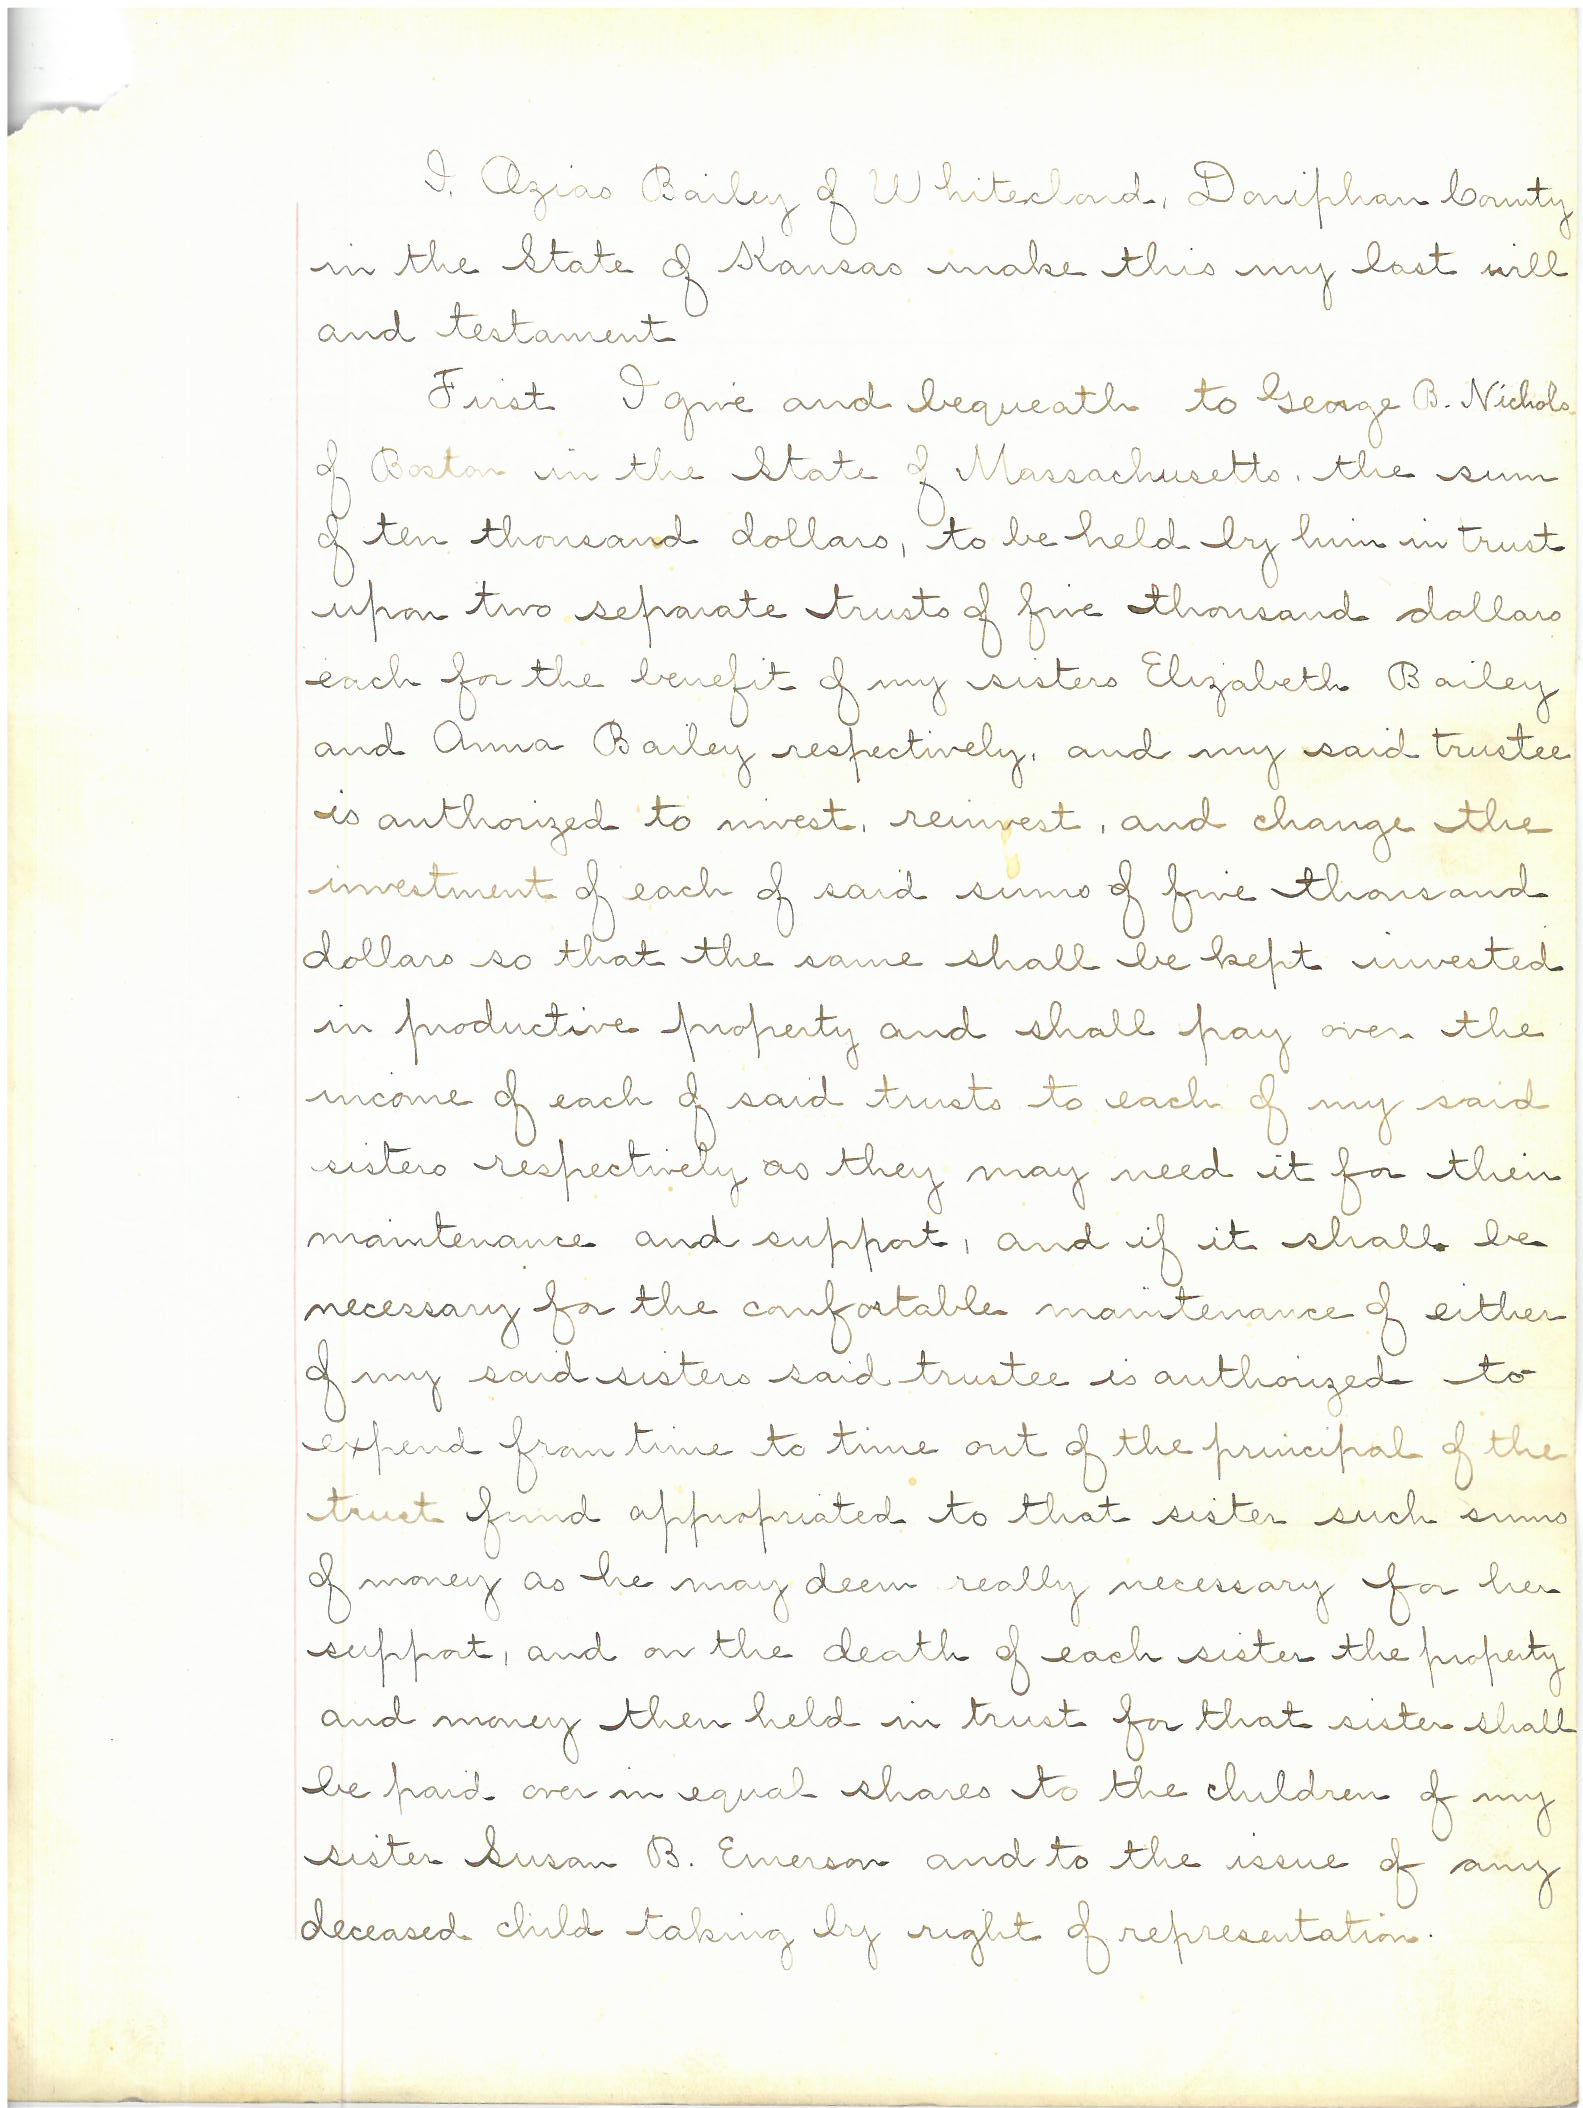 I, Ozias Bailey of Whitecloud, Doniphan County
in the State of Kansas make this my last will
and testament
First I give and bequeath to George B. Nichols
of Boston in the State of Massachusetts, the sum
of ten thousand dollars, to be held by him in trust
upon two separate trusts of five thousand dollars
each for the benefit of my sisters Elizabeth Bailey
and Anna Bailey respectively, and my said trustee
is authorized to invest, reinvest, and change the
investment of each of said sums of five thousand
dollars so that the same shall be kept invested
in productive property and shall pay over the
income of each of said trusts to each of my said
sisters respectively as they may need it for their
maintenance and support, and if it shall be
necessary for the comfortable maintenance of either
of my said sisters said trustee is authorized to
expend from time to time out of the principal of the
trust fund appropriated to that sister such sums
of money as he may deem really necessary for her
support, and on the death of each sister the property
and money then held in trust for that sister shall
be paid over in equal shares to the children of my
sister Susan B. Emerson and to the issue of any
deceased child taking by right of representation.